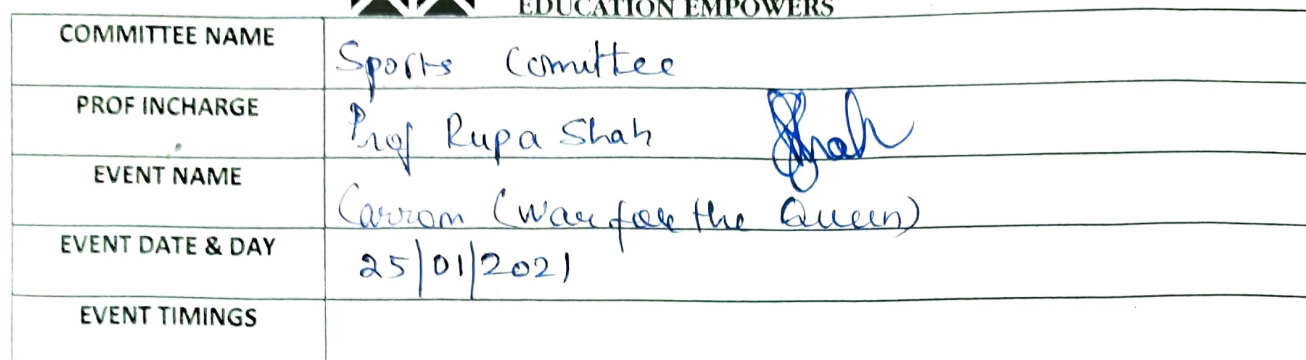 EDUCATION EMPOWERS
COMMITTEE NAME Sports Comittee
PROF INCHARGE Prof Rupa Shah Shah
EVENT NAME Carrom (War for the Queen)
EVENT DATE & DAY 25/01/2021
EVENT TIMINGS